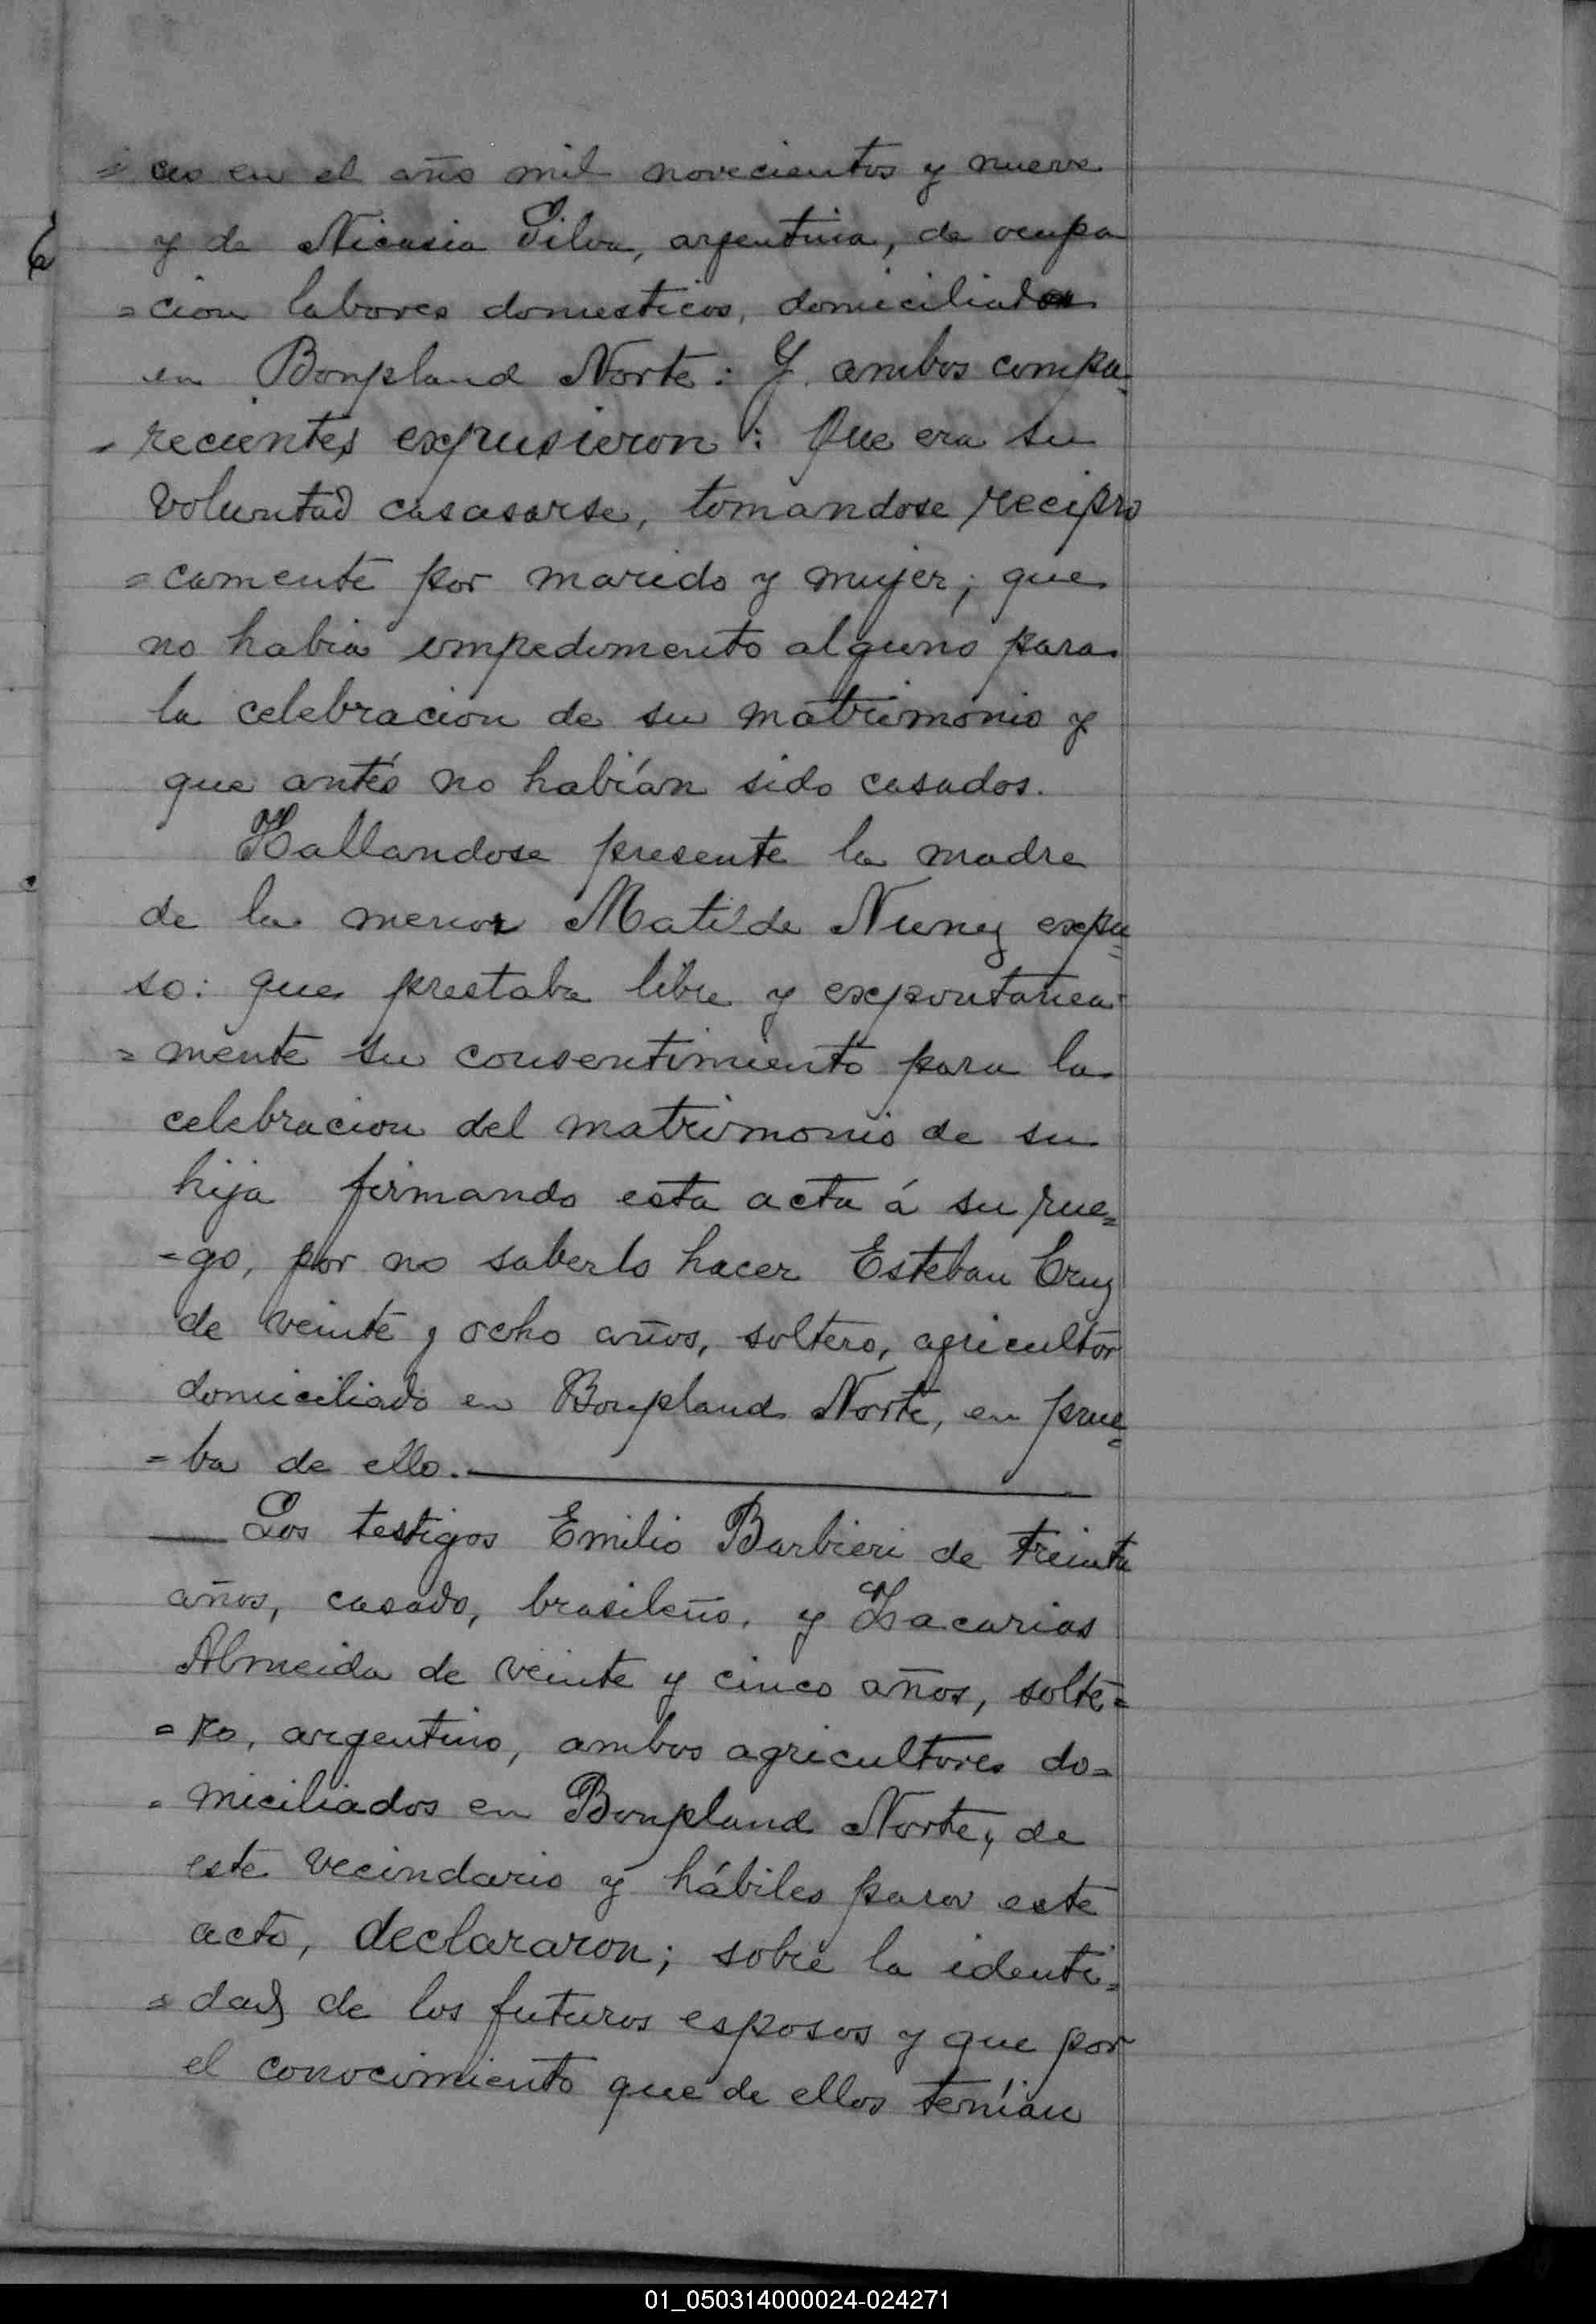 = ces en el año mil novecientos y nueve
y de Nicasia Silva, argentina, de ocupa
=cion labores domesticos, domiciliados
en Bonpland Norte: Y ambos compa=
=recientes expusieron: Que era su
voluntad casasarse, tomandose recipro
=camente por marido y mujer; que
no habia impedimento alguno para
la celebracion de su matrimonio y
que antés no habían sido casados.
Hallandose presente la madre
de la menor Matilde Nunez expu=
so: que prestaba libre y expontanea
=mente su consentimiento para la
celebracion del matrimonio de su
hija firmando esta acta á su rue=
=go, por no saberlo hacer Esteban Cruz
de veinte y ocho años, soltero, agricultor
domiciliado en Bonpland Norte, en prue=
=ba de ello.
Los testigos Emilio Barbieri de treinta
años, casado, brasileño, y Zacarias
Almeida de veinte y cinco años, solte=
=ro, argentino, ambos agricultores do=
=miciliados en Bonpland Norte, de
este vecindario y hábiles para este
acto, declararon; sobre la identi=
=dad de los futuros esposos y que por
el conocimiento que de ellos tenían
01_050314000024-024271